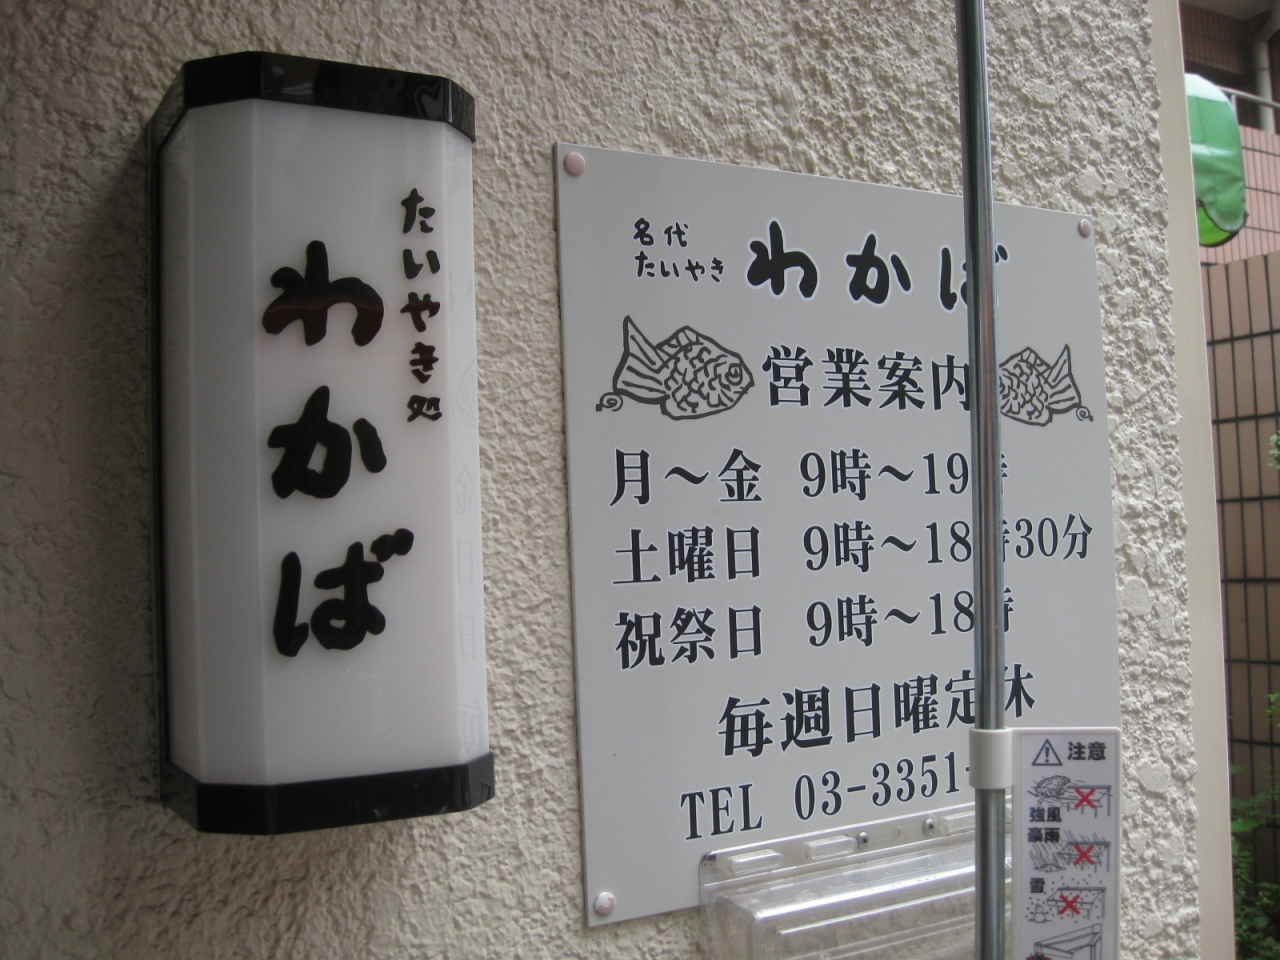 たいやき処
わかば
名代
たいやき
わかば
営業案内
月～金 9時～19時
土曜日 9時～18時30分
祝祭日 9時～18時
毎週日曜定休
TEL 03-3351-
注意
強風
豪雨
雪